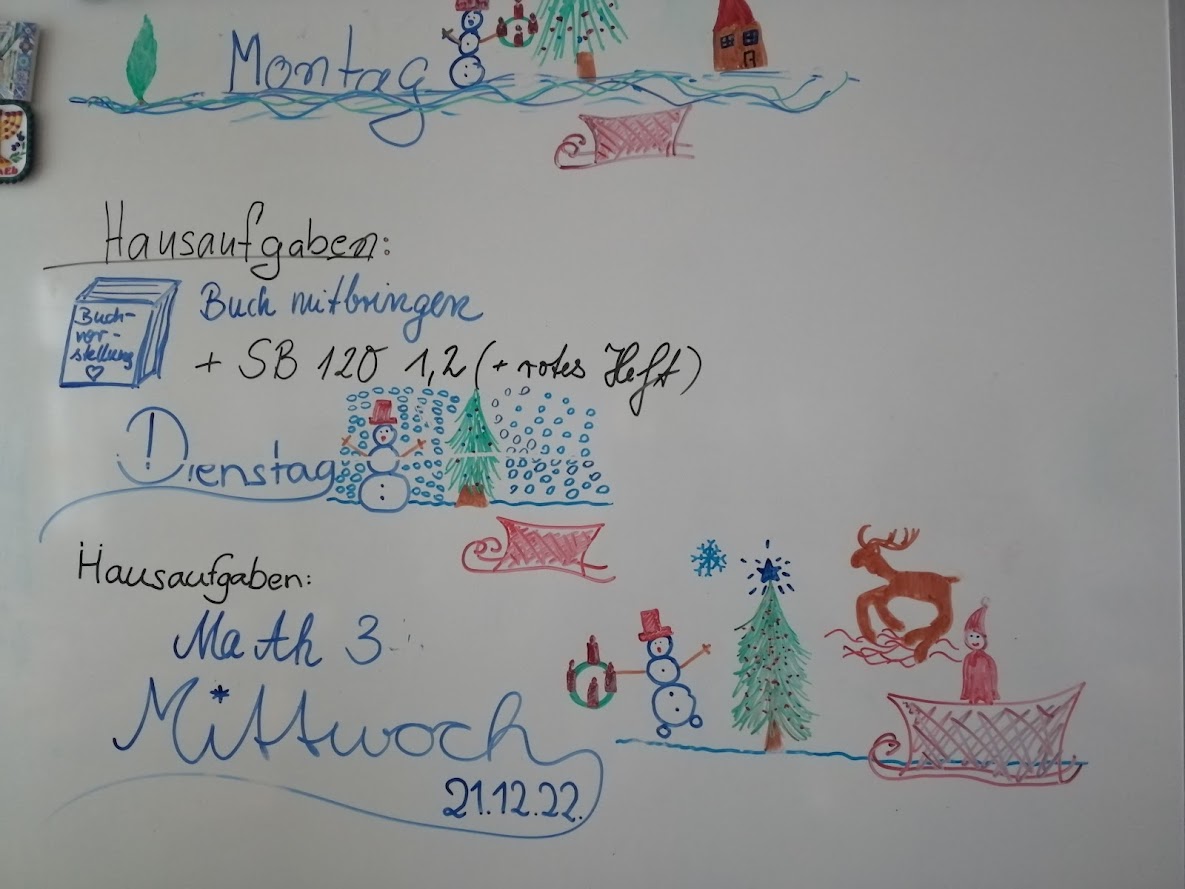 Montag
Hausaufgaben:
Buch mitbringen
Buch-
vor-
stellung
+ SB 120 1,2 (+ rotes Heft)
Dienstag
Hausaufgaben:
Math 3
Mittwoch
21.12.22.